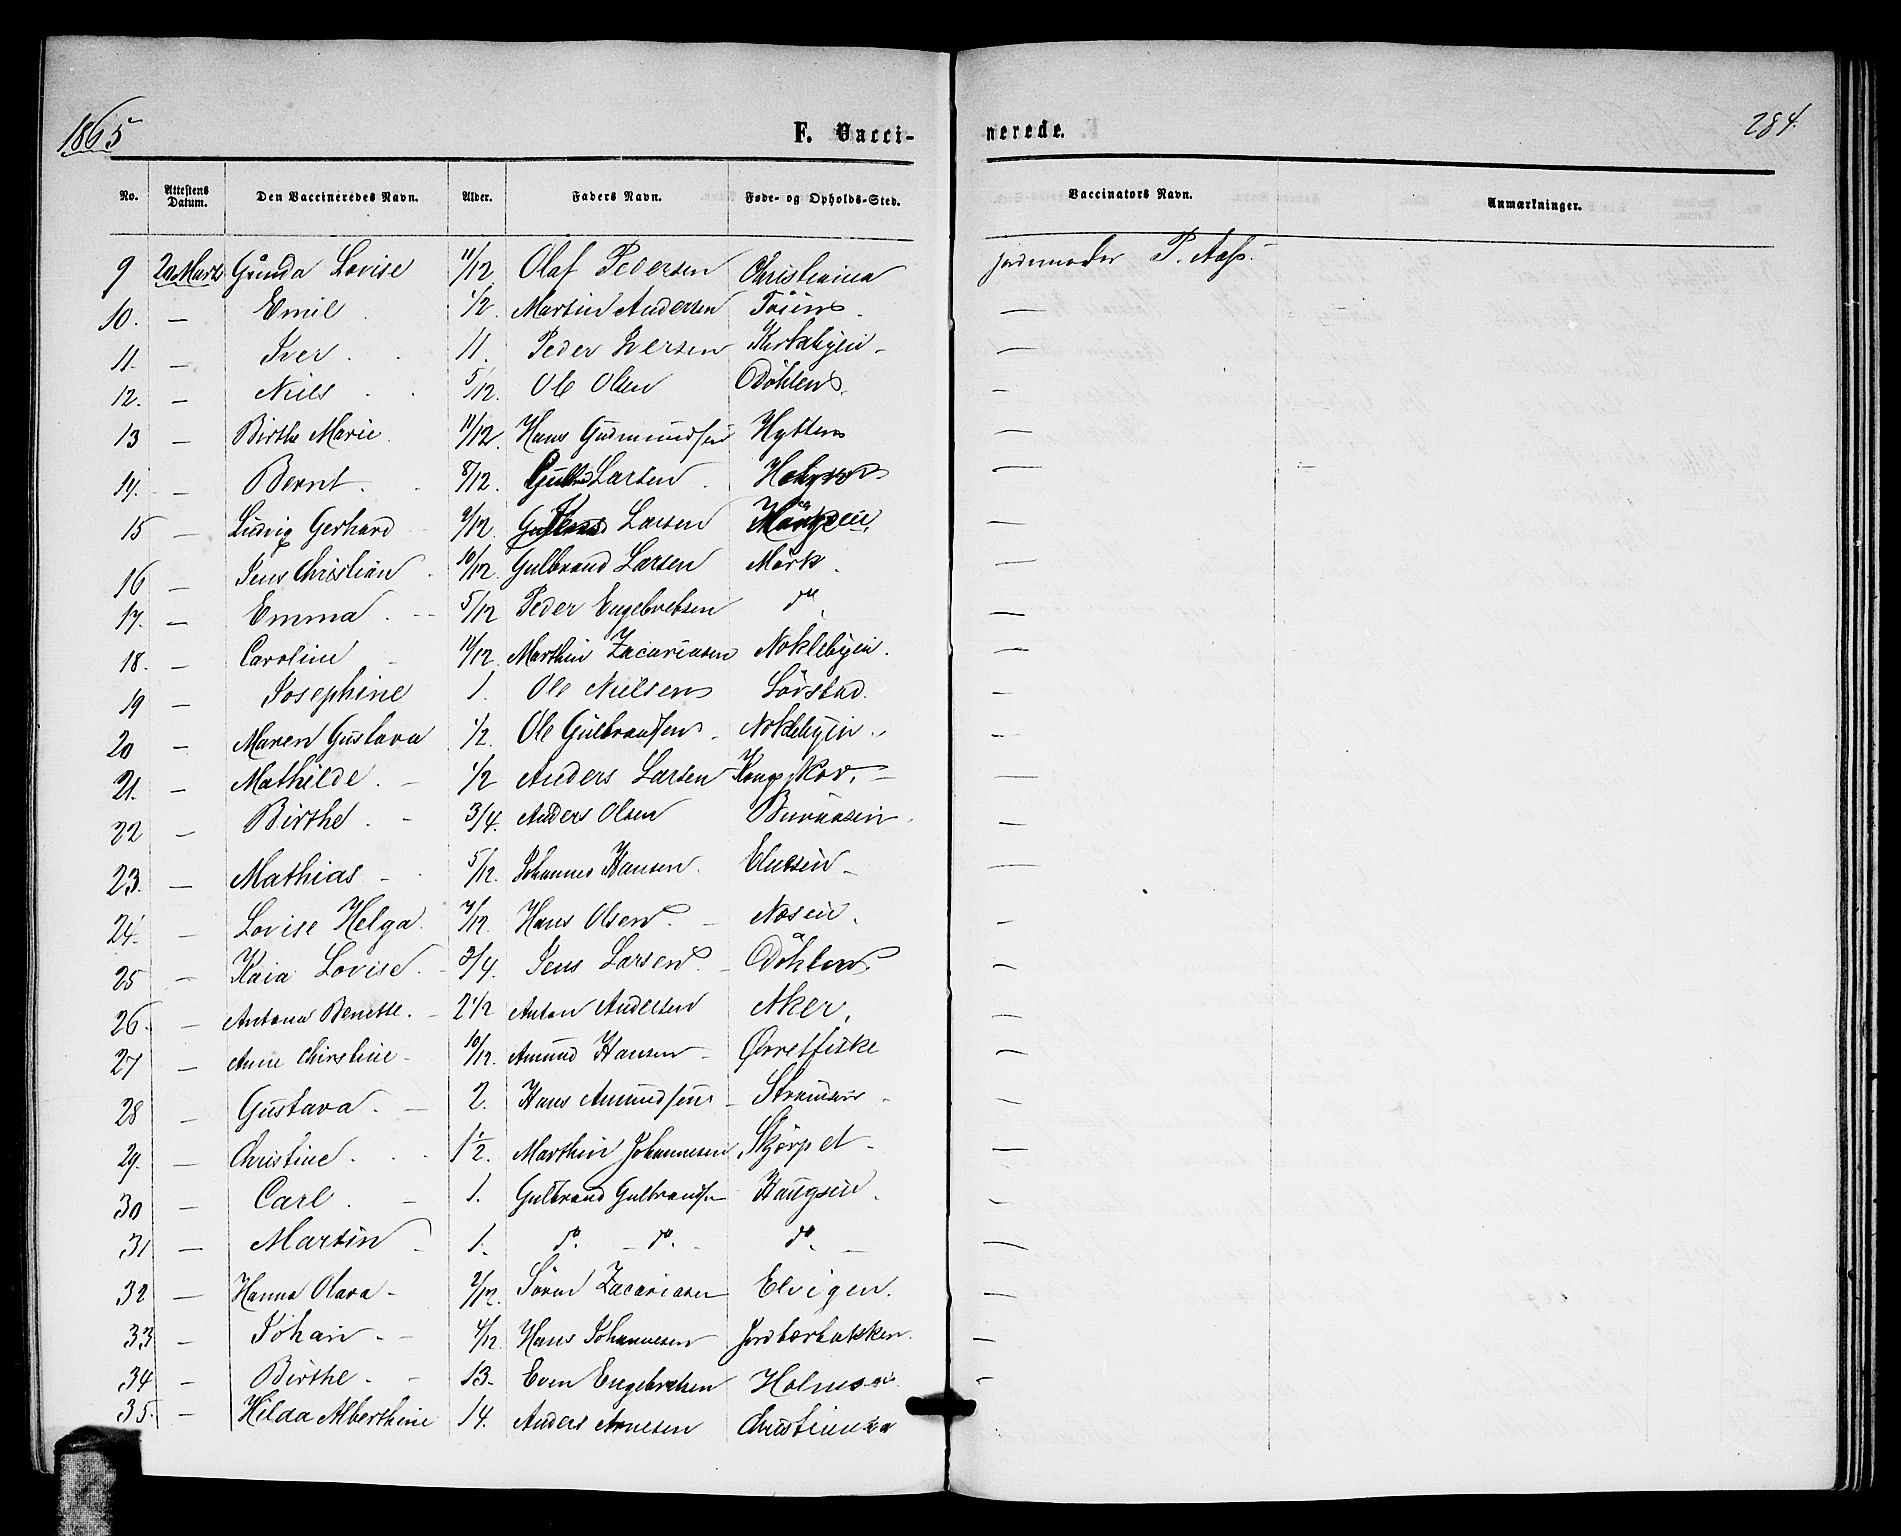 1865
F. Vacci-
nerede.
284.
No. Attestens Datum. Den Vaccineredes Navn. Alder. Faders Navn. Føde- og Opholds-Sted. Vaccinators Navn. Anmærkninger.
9 Marts Gunda Lovise 11/12 Olaf Pedersen Christiania Jordmoder P. Aass.
10. — Emil 1/2 Martin Andersen Töien —
11. — Iver 11. Peder Iversen Kirkebyen —
12. — Niels 5/12. Ole Olsen Döhlen —
13 — Birthe Marie 11/12. Hans Gudmundsen Hytten —
14. — Bernt 8/12. Larsen —
15 — Ludvig Gerhard 9/12. Larsen —
16 — Jens Christian 10/12. Gulbrand Larsen Mörk —
17. — Emma 5/12 Peder Engebretsen do —
18. — Caroline 11/12. Marthin Zacariasen Noklebyen —
19 — Josephine 1. Ole Nielsen Lövstad —
20 — Maren Gustava 1/2. Ole Gulbrandsen Noklebyen —
21. — Mathilde 1/2 Anders Larsen Kongskov —
22 — Birthe 3/4. Anders Olsen —
23. — Mathias 5/12. Johannes Hansen —
24. — Lovise Helga 7/12. Hans Olsen Nosen —
25 — Kaia Lovise 3/4. Jens Larsen Döhlen —
26. — Antona Benette 2 1/2 Anton Andersen Aker —
27 — Anne Christine 10/12. Amund Hansen Ørretfiske —
28 — Gustava 2. Hans Amundsen —
29. — Christine 1 1/2. Marthin Johannesen Skjörpet —
30 — Carl 1. Gulbrand Gulbrandsen Haugsen —
31 — Martin 1. do do do —
32 — Hanna Olava 9/12. Sören Zacariasen Elvigen. —
33 — Johan 4/12 Hans Johannesen Jordbærbakken. —
34 — Birthe 13. Even Engebretsen —
35. — Hilda Alberthine 14. Anders Arnesen Christiania